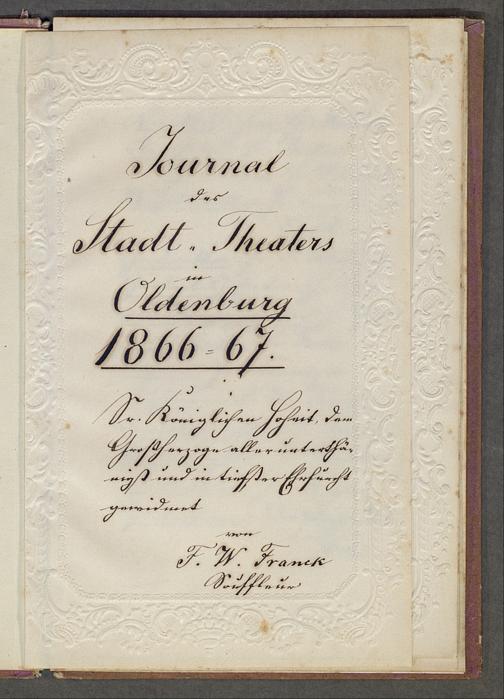 Journal
des
Stadt-Theaters
in
Oldenburg
1866-67.
Sr. Königlichen Hoheit, dem
Großherzoge allerunterthä-
nigst und in tiefster Ehrfurcht
gewidmet
von
F. W. Franck
Souffleur